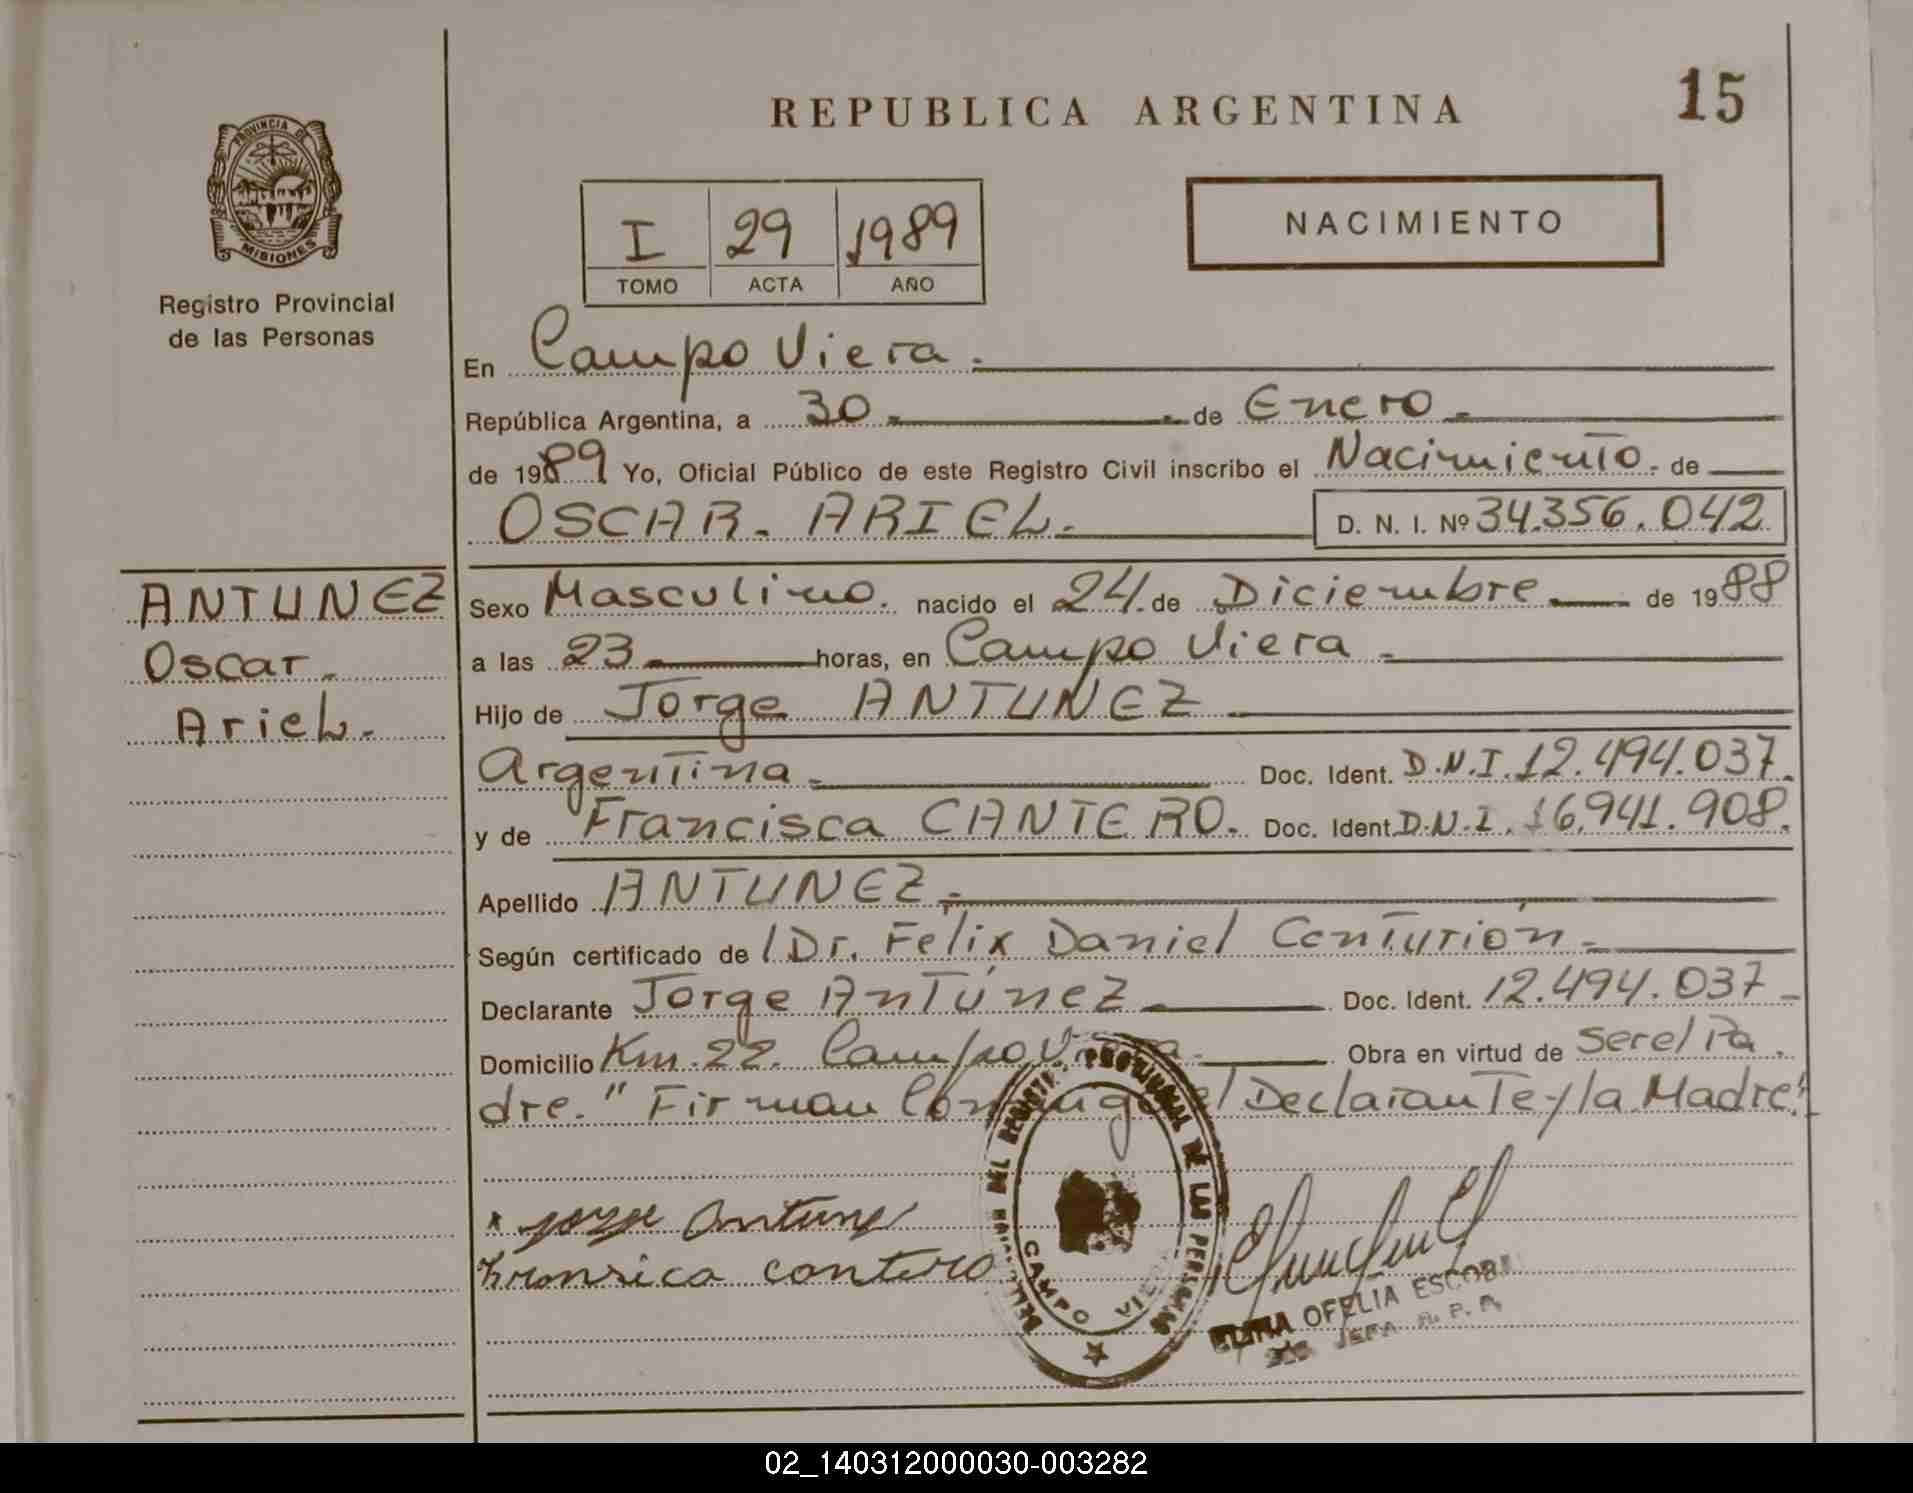 REPUBLICA ARGENTINA
15
PROVINCIA D
MISIONES
Registro Provincial
de las Personas
I 29 1989
TOMO ACTA AÑO
NACIMIENTO
En Campo Viera.
República Argentina, a 30 de Enero
de 1989 Yo, Oficial Público de este Registro Civil inscribo el Nacimiento. de
OSCAR. ARIEL. D. N. I. Nº 34.356.042
ANTUNEZ
Oscar.
Ariel.
Sexo Masculino. nacido el 24 de Diciembre de 1988
a las 23 horas, en Campo Viera
Hijo de Jorge ANTUNEZ
Argentina Doc. Ident. D.N.I. 12.494.037.
y de Francisca CANTERO. Doc. Ident. D.N.I. 16.941.908.
Apellido ANTUNEZ
Según certificado de / Dr. Félix Daniel Centurión
Declarante Jorge Antúnez Doc. Ident. 12.494.037
Domicilio Km. 22. Campo Viera. Obra en virtud de ser el Pa
dre." Firman Conmigo el Declarante y la Madre".
x Jorge Antune
cantero
DEL REGISTR. PROVINCIAL DE LAS PERSONAS
CAMPO VIE
OFELIA ESCOB
JEFA R. P. P.
02_140312000030-003282